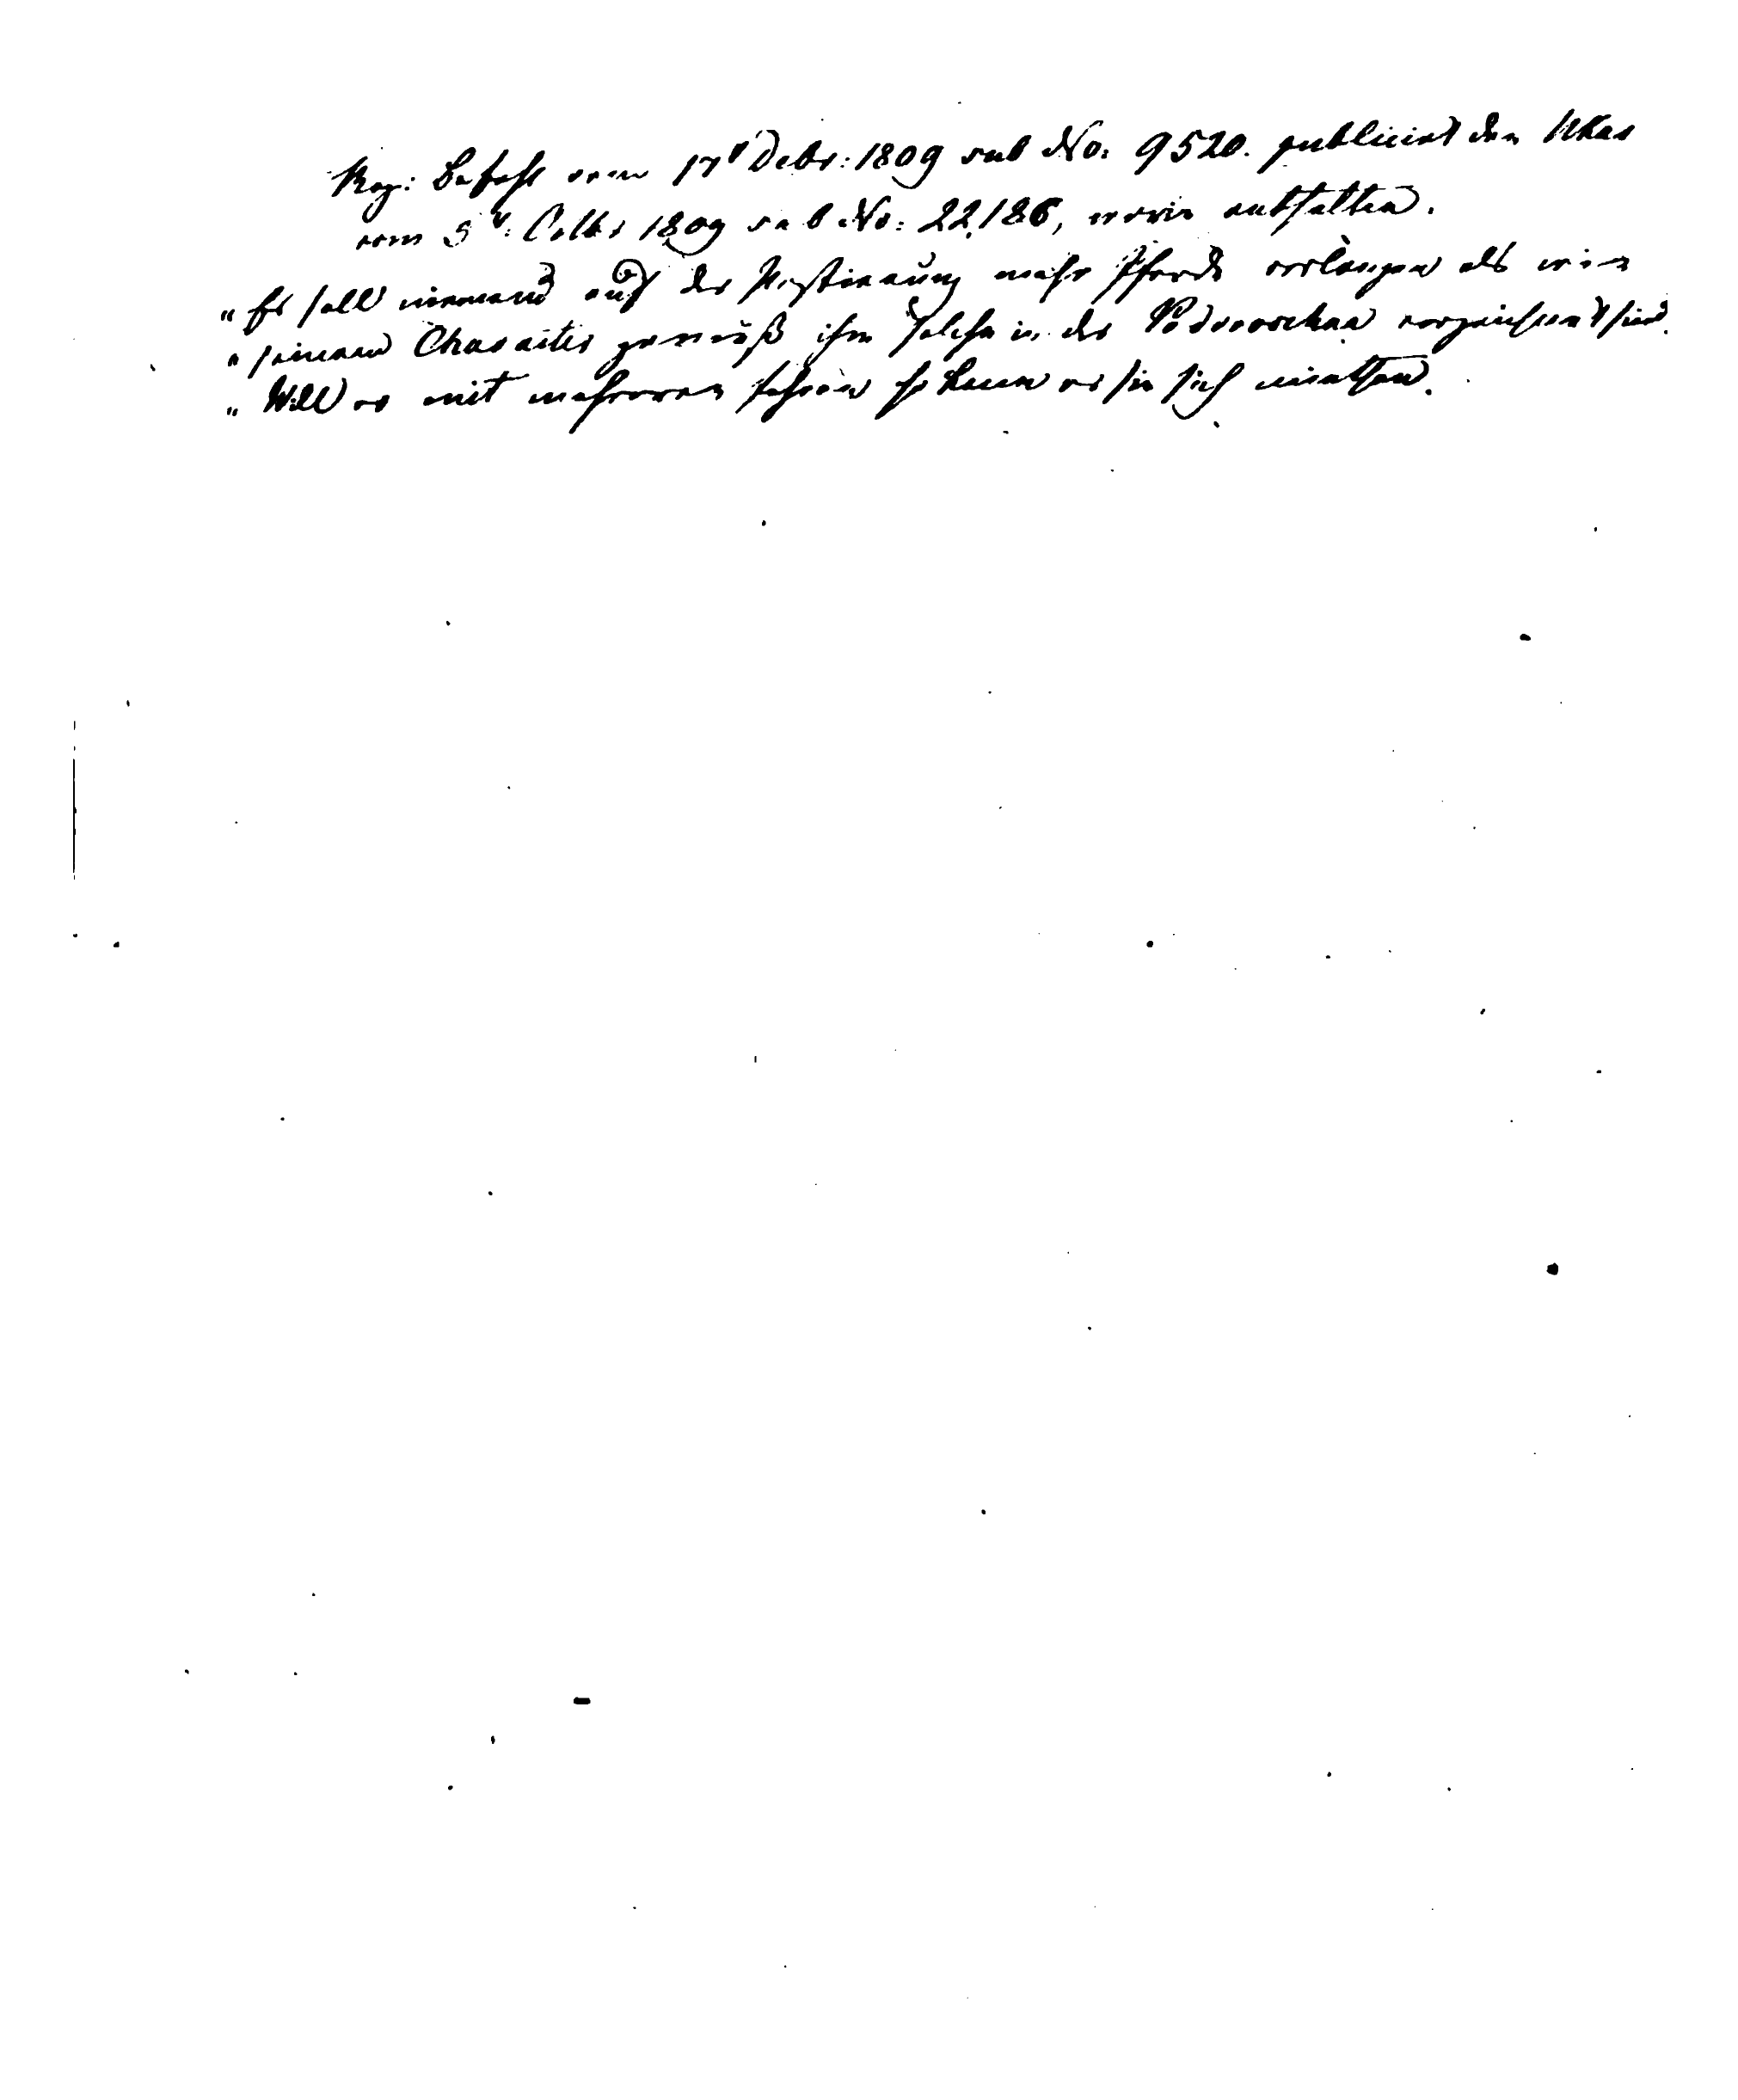 Reg: Befehl vom 17t Debr: 1809 sub No: 9520. publicirt den Ukas
vom 5t: Octbr 1809 sub No: 22,186, worin enthalten.
„ Es soll niemand auf der Postirung mehr Pferde verlangen als wie
„ seinem Charakter gemäß ihm solche in der Podoroschna verzeichnet sind.
„ Will er mit mehreren fahren so kann er sie sich miethen.